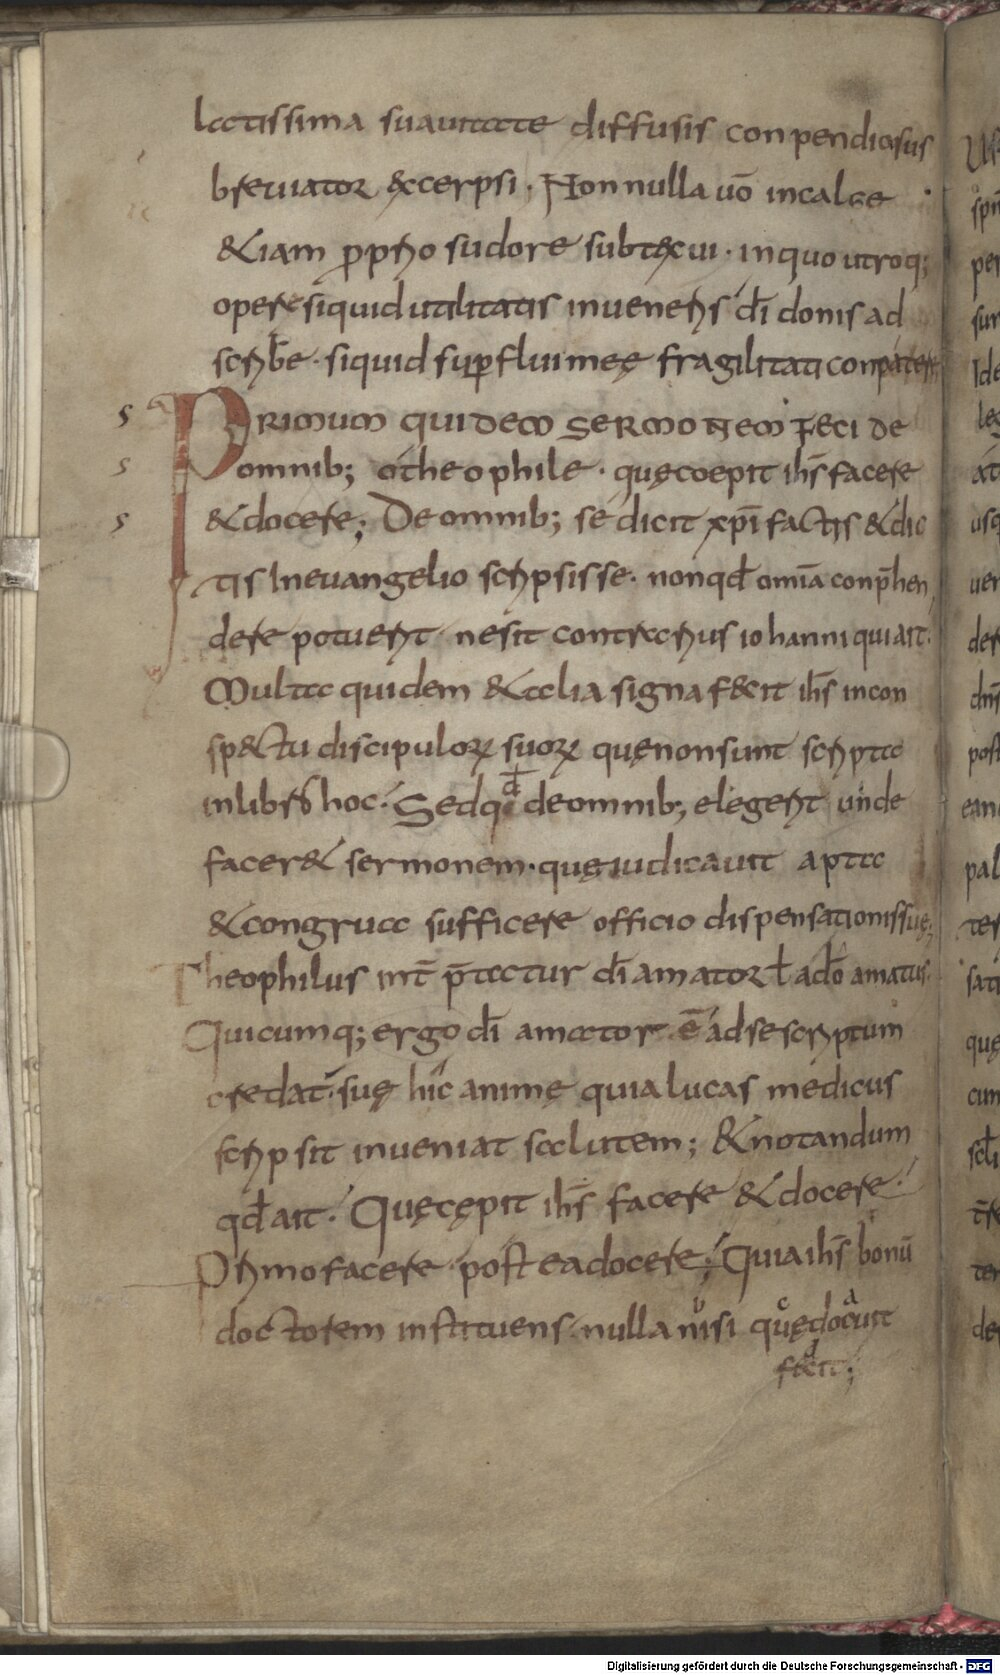 lectissima suauitate diffusis conpendiosus
breuiator &cerpsi · Nonnulla uō in calce
&iam ꝓprio sudore subtexui · in quo utroq;
opere siquid utilitatis inueneris dī donis ad
scribe · siquid suꝑflui meę fragilitati conpatere
PRIMUM QUIDEM SERMONEM FECI DE
omnib; o theophile · quę coepit ihs̄ facere
&docere; De omnib; se dicit xp̄i factis &dic
tis In euangelio scripsisse · non qđ omīa conp̄hen
dere potuerit · ne sit contrarius iohanni qui ait·
Multa quidem &alia signa fecit ihs̄ in con
sp&tu discipuloꝝ suoꝝ quę non sunt scripta
in libro hoc · Sed qđ de omnib; elegerit unde
facer& sermonem · quę iudicauit apta
&congrua sufficere officio dispensationis suę;
Theophilus int̄ p̄tatur dī amator ł a dō amatus·
Quicumq; ergo dī amator ē ad se scriptum
credat · suę hic animę quia lucas medicus
scripsit inueniat salutem; &notandum
qđ ait · Quę cępit ihs̄ facere &docere ·
Primo facere postea docere; Quia ihs̄ bonū
doctorem instituens · nulla nisi quę docuit
fecit;
s
s
s
Digitalisierung gefördert durch die Deutsche Forschungsgemeinschaft - DFG